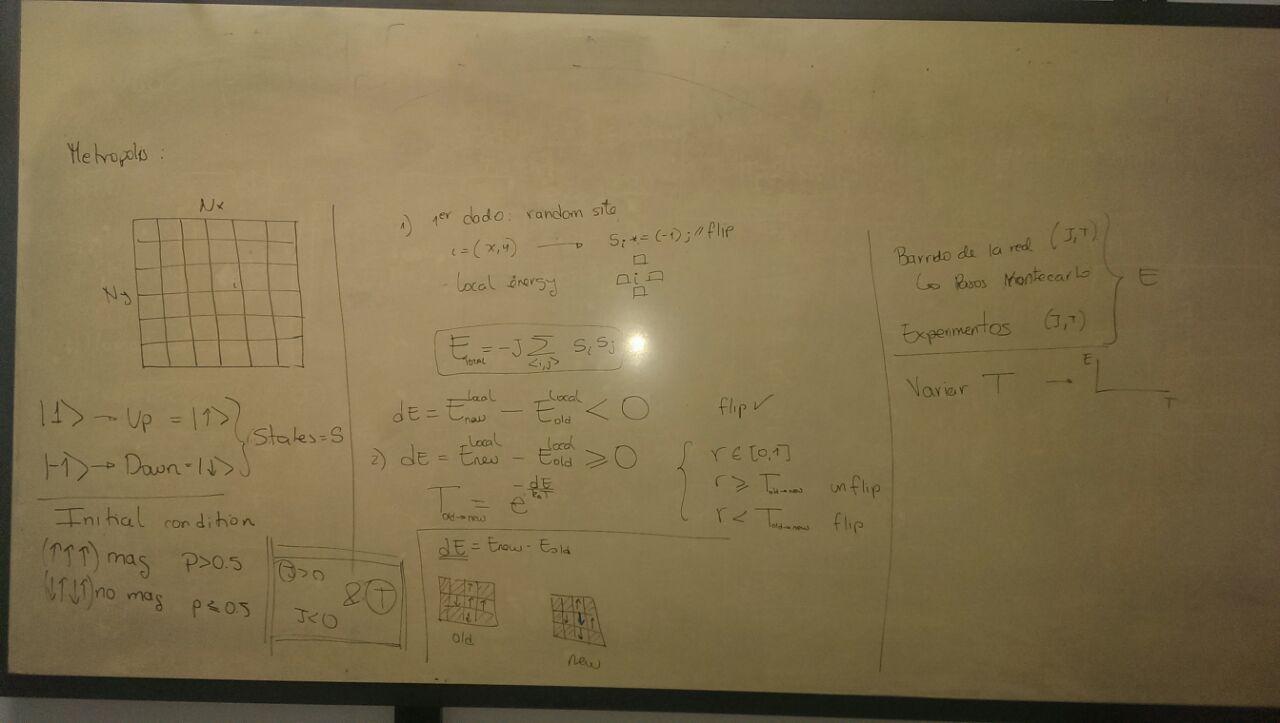 Metropolis :
Nx
Ny
i
|1> → Up = |↑>
|-1> → Down = |↓>
States = S
Initial condition
(↑↑↑) mag p>0.5
(↓↑↓↑) no mag p≤0.5
J>0
J<0
& T
1) 1er dado: random site
i=(x,y) → Si *= (-1); // flip
- local energy
i
E_TOTAL = -J ∑_<i,j> Si Sj
dE = E_new^local - E_old^local < 0 flip ✓
2) dE = E_new^local - E_old^local ≥ 0
T_old→new = e^(-dE/(K_B T))
r ∈ [0,1]
r ≥ T_old→new unflip
r < T_old→new flip
dE = Enew - Eold
old
new
Barrido de la red (J,T)
↳ Pasos Montecarlo
Experimentos (J,T)
E
Variar T →
E
T